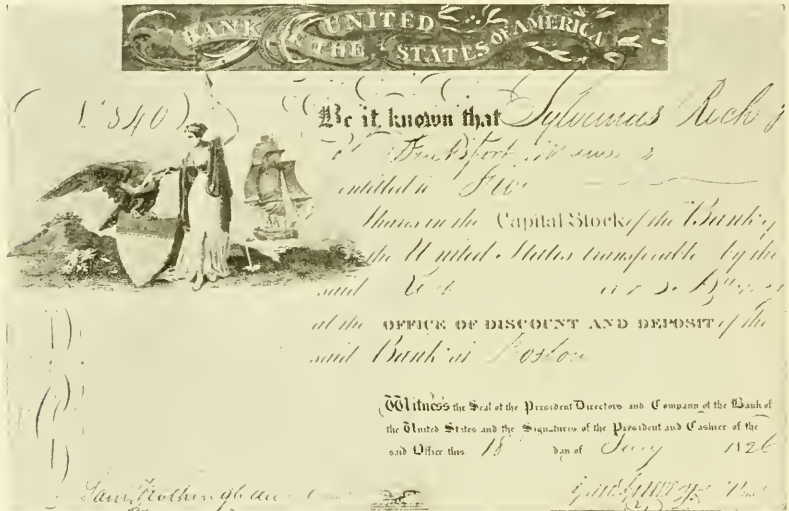 BANK OF THE UNITED STATES OF AMERICA
Be it known that Sylvanus Rich
entitled to
Shares in the Capital Stock of the Bank of
the United States transferable by the
said
at the OFFICE OF DISCOUNT AND DEPOSIT of the
said Bank at Boston
Witness the Seal of the President Directors and Company of the Bank of
the United States and the Signatures of the President and Cashier of the
said Office this 18 day of 1826
Saml Frothingham